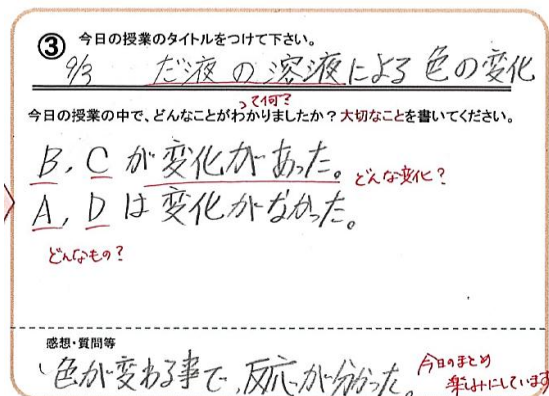 ③ 今日の授業のタイトルをつけて下さい。
9/3 だ液の溶液による色の変化
って何?
今日の授業の中で、どんなことがわかりましたか?大切なことを書いてください。
B, Cが変化があった。
どんな変化?
A, Dは変化がなかった。
どんなもの?
感想・質問等
色が変わる事で、反応が分かった。
今日のまとめ
楽しみにしています